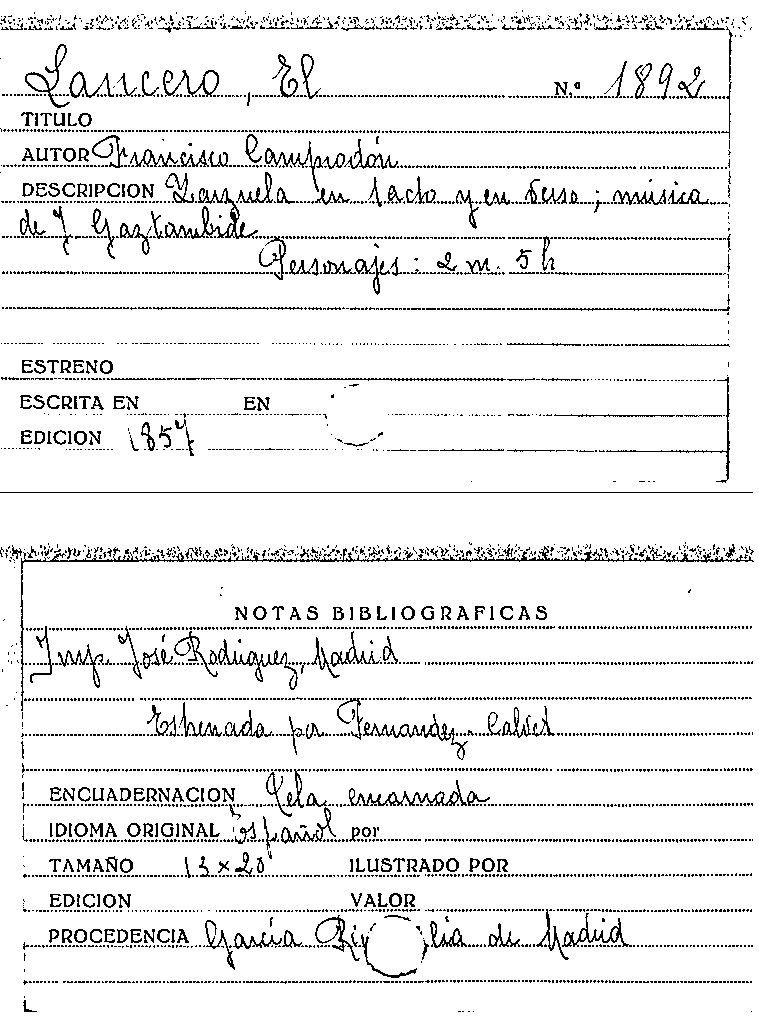 Lancero, El N.º 1892
TITULO
AUTOR Francisco Camprodón
DESCRIPCION Zarzuela en 1 acto y en verso; música
de J. Gaztambide
Personajes: 2 m. 5 h
ESTRENO
ESCRITA EN EN
EDICION 1857
NOTAS BIBLIOGRAFICAS
Imp. José Rodríguez, Madrid
Estrenada por Fernandez, Calvet
ENCUADERNACION Tela encarnada
IDIOMA ORIGINAL Español por
TAMAÑO 13 x 20 ILUSTRADO POR
EDICION VALOR
PROCEDENCIA García de Madrid